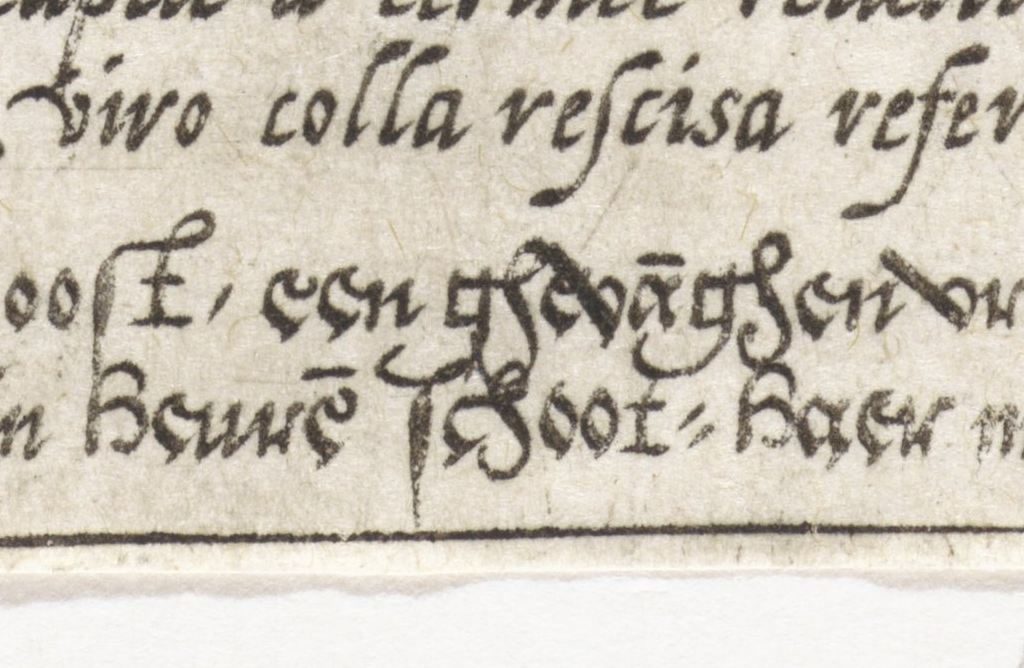 viro colla reſcisa refer
ooſt, een ghevāghen vr
n heurē ſchoot, haer m